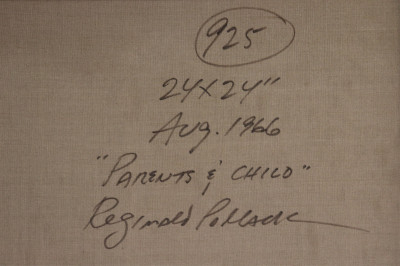 925
24X24"
Aug. 1966
"PARENTS & CHILD"
Reginald Pollack